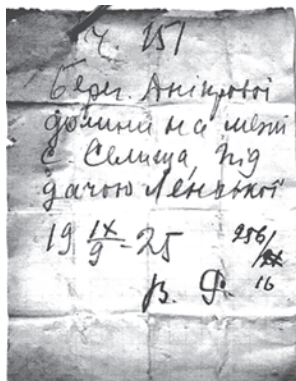 ч. 151
Берег. Дніпрової
долини на межі
с. Селища, під
дачою Ленської
19 IX/9 - 25 256/
В. Ф. 16